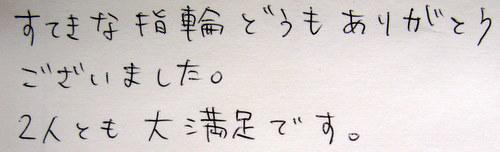 すてきな指輪どうもありがとう
ございました。
2人とも大満足です。